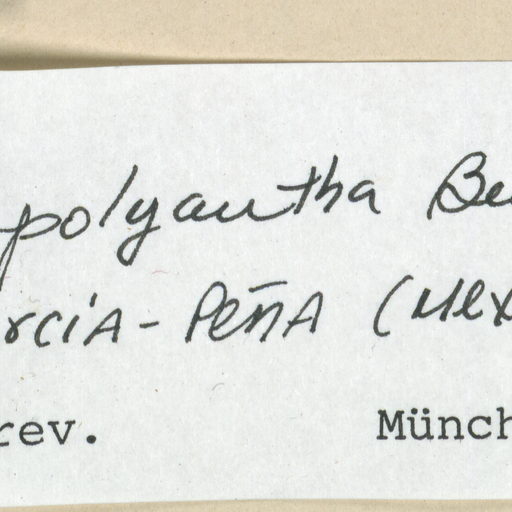 polyantha Be
rcia-Peña (Mex
rev. Münch